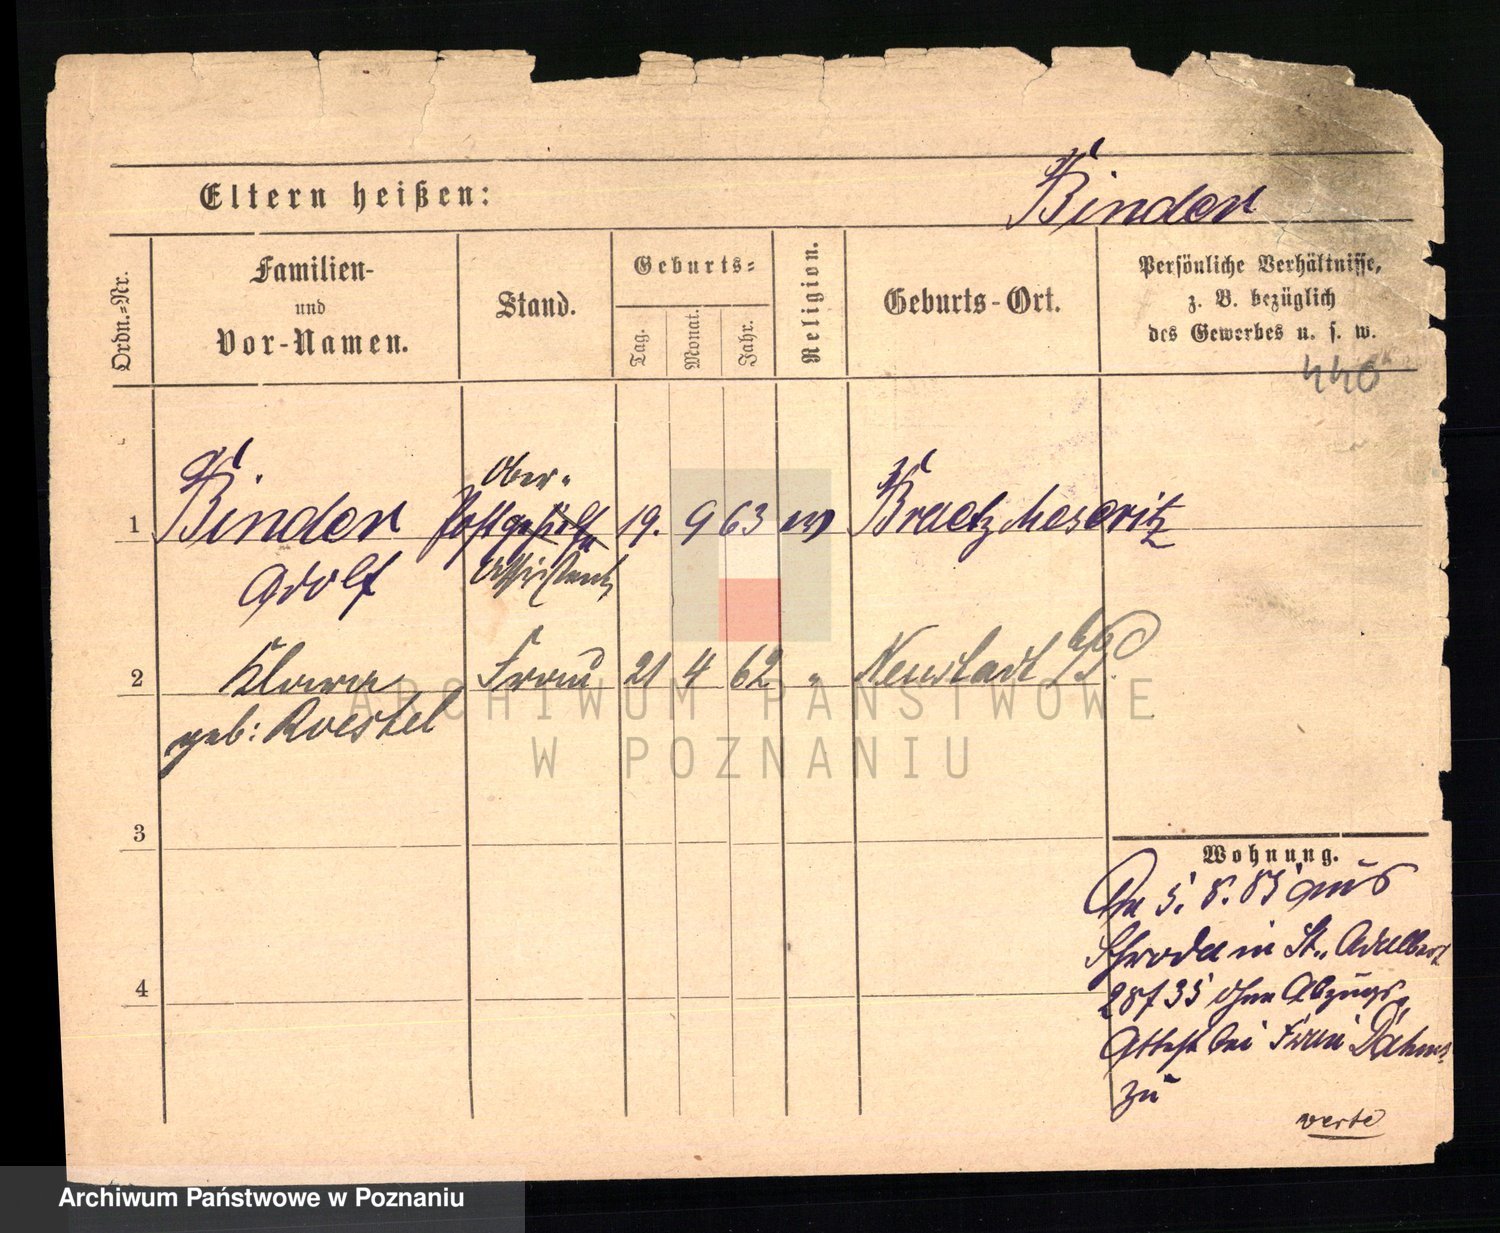 Binder
Eltern heißen:
Ordn.-Nr.
Familien-
und
Vor-Namen.
Stand.
Geburts-
Tag.
Monat.
Jahr.
Religion.
Geburts-Ort.
Persönliche Verhältnisse,
z. B. bezüglich
des Gewerbes u. s. w.
440
1
Binder
Adolf
Ober-
Postgehilfe
Assistent
19. 9 63
ev
Braetz Meseritz
2
Klara
geb: Roestel
Frau
21 4 62
"
Neustadt
3
4
Wohnung.
5. 8. 85 aus
Schroda in St. Adalbert
28/35 ohne Abzugs
Attest bei Frau
zu
verte
ARCHIWUM PAŃSTWOWE
W POZNANIU
Archiwum Państwowe w Poznaniu